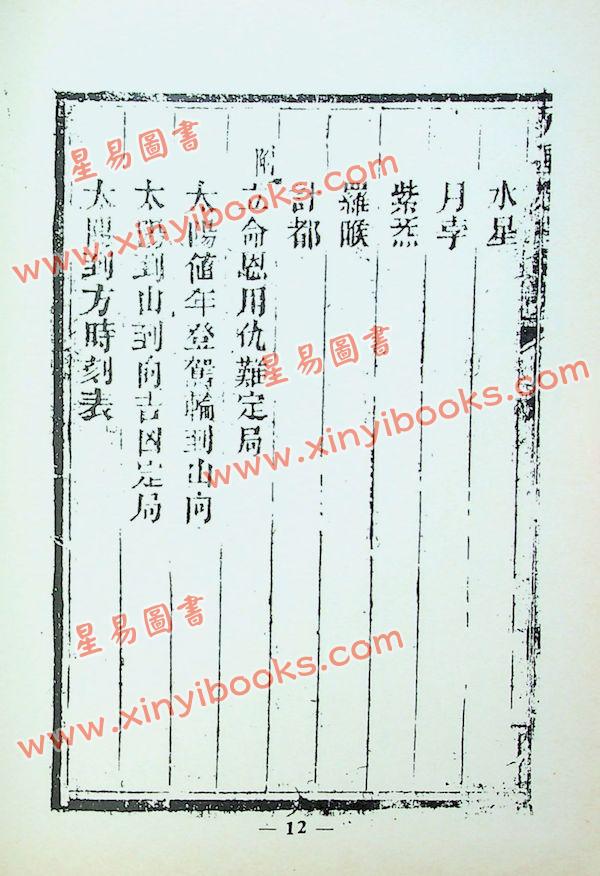 水星
月孛
紫炁
羅睺
計都
附
立命恩用仇難定局
太陽値年登駕輪到山向
太陽到山到向吉凶定局
太陽到方時刻表
— 12 —
星易圖書
www.xinyibooks.com
星易圖書
www.xinyibooks.com
星易圖書
www.xinyibooks.com